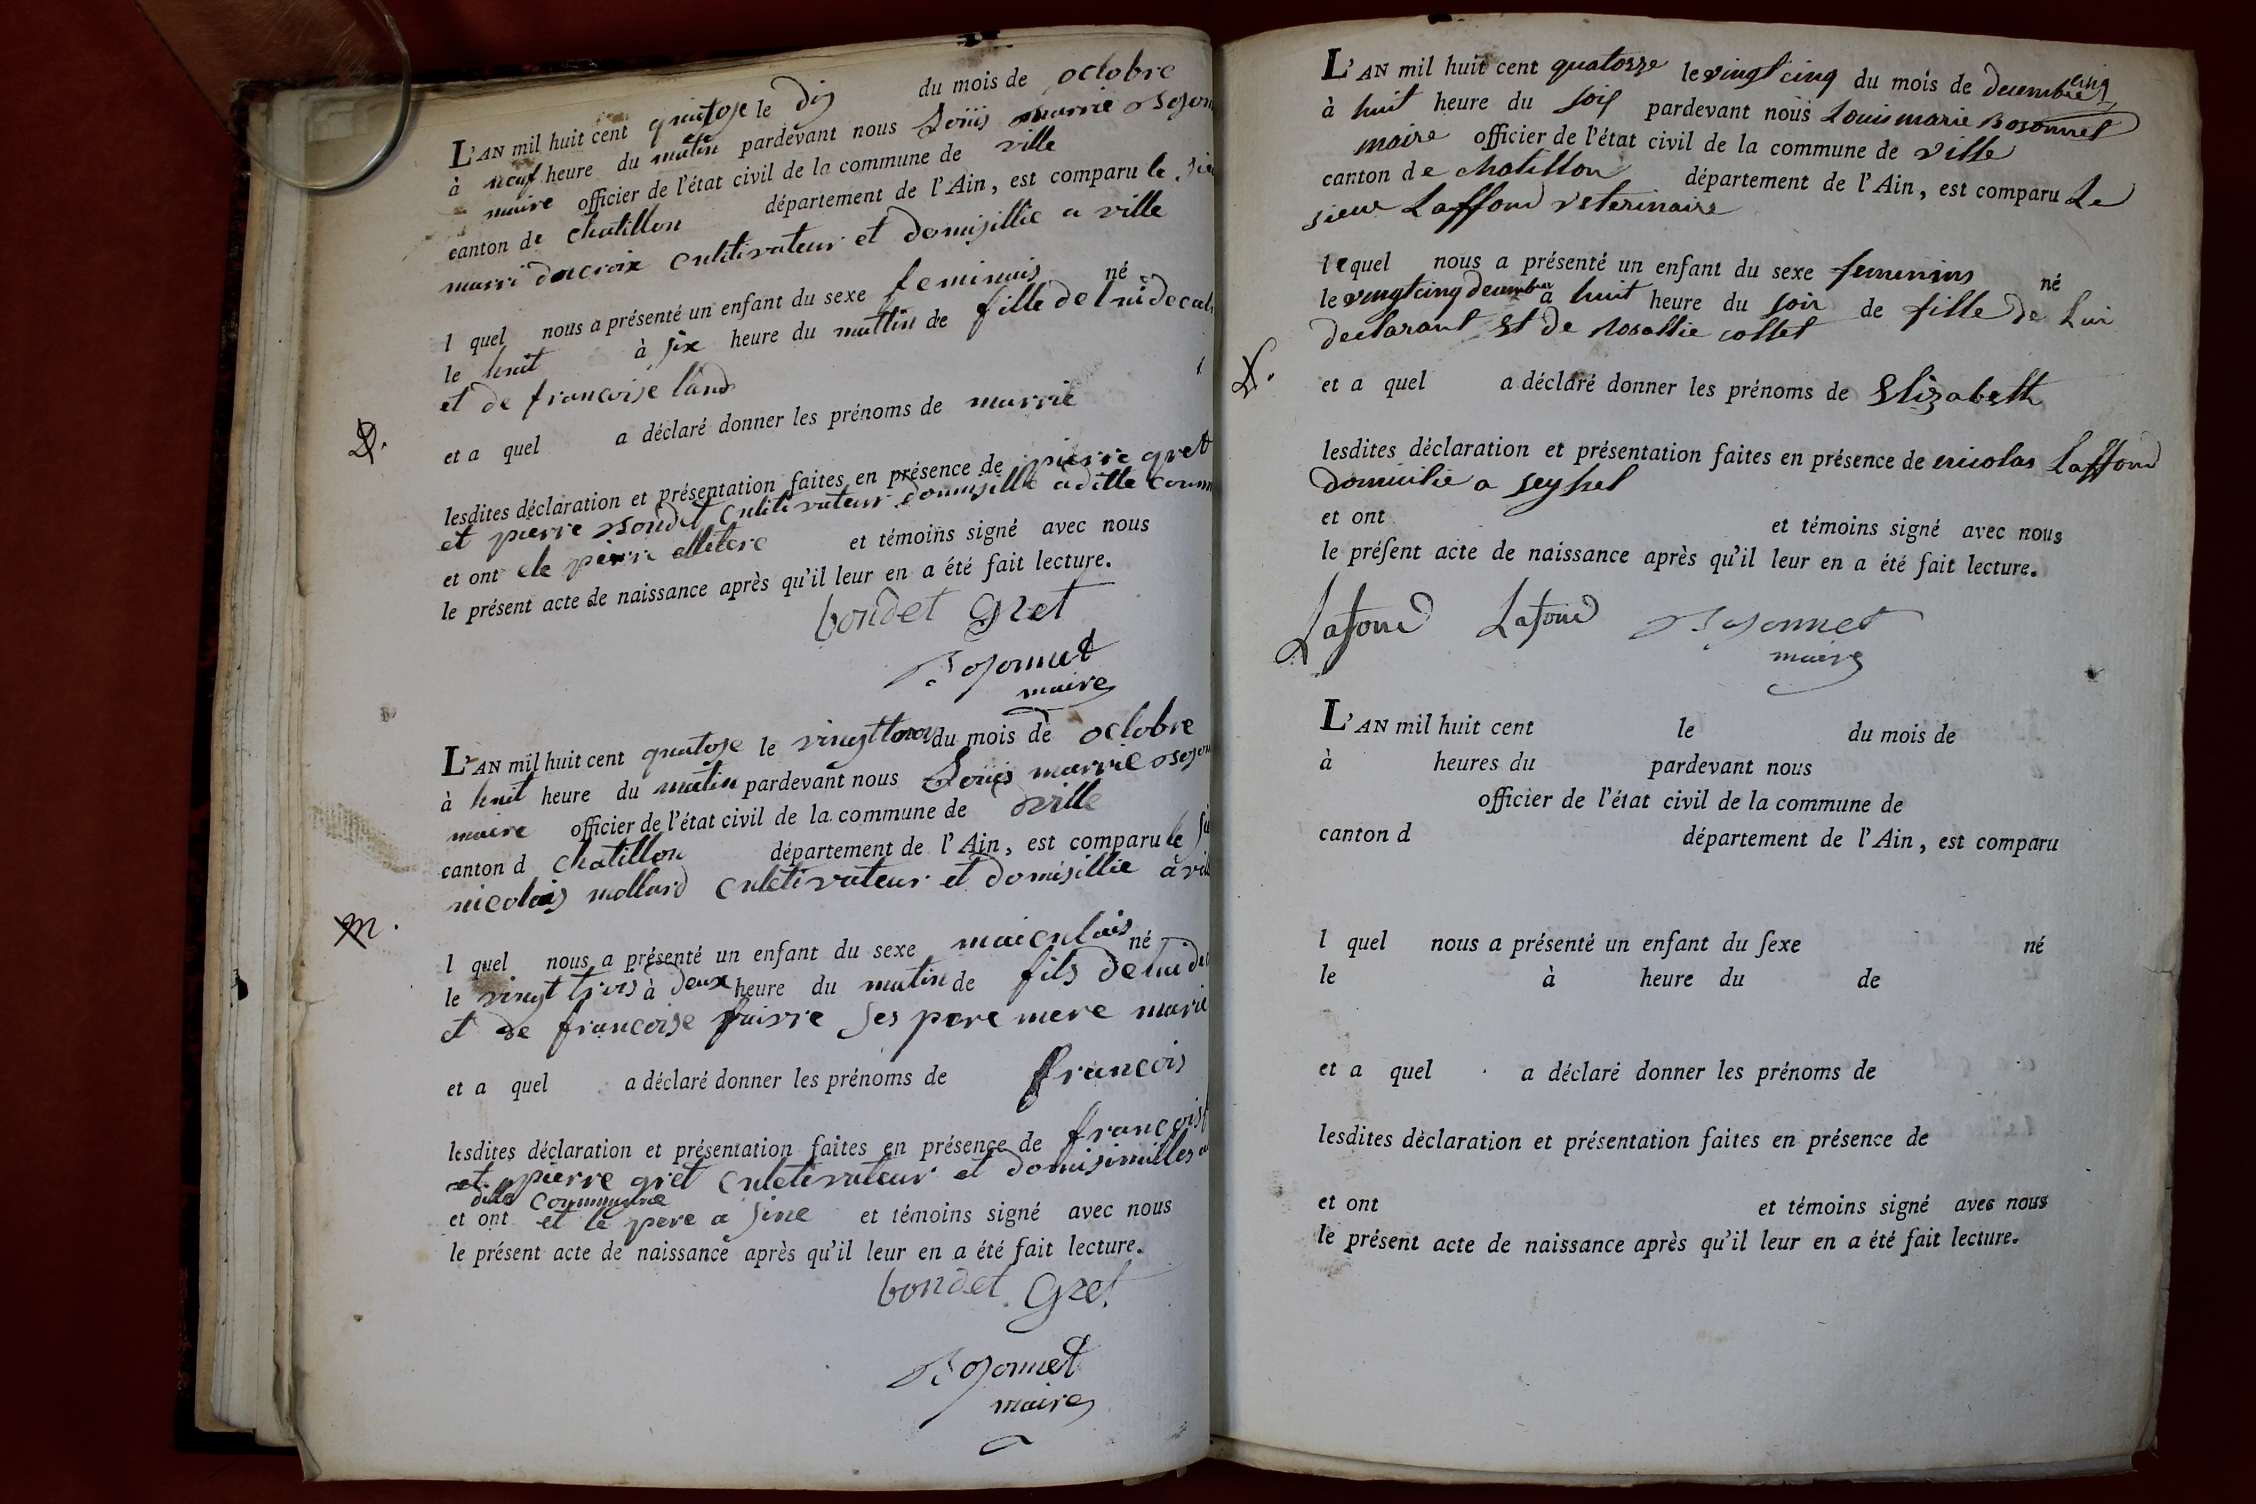 L'AN mil huit cent quatose le dix du mois de octobre
à neuf heure du matin pardevant nous Loüis marrie
maire officier de l'état civil de la commune de ville
canton de chatillon département de l'Ain, est comparu le
marri ducroix cultivateur et domisillié a ville
l quel nous a présenté un enfant du sexe feminuis né
le huit à six heure du mattin de fille de lui
et de francoise
D.
et a quel a déclaré donner les prénoms de marrie
lesdites déclaration et présentation faites en présence de pierre gret
et pierre bondet cultivateur domisillé
et ont et témoins signé avec nous
le présent acte de naissance après qu'il leur en a été fait lecture.
bondet Gret
Bosonnet
maire
L'AN mil huit cent quatose le du mois de octobre
à huit heure du matin pardevant nous Loüis marrie
maire officier de l'état civil de la commune de ville
canton d chatillon département de l'Ain, est comparu le
nicolas mollard cultivateur et domisillié à
M.
l quel nous a présenté un enfant du sexe né
le vingt trois à deux heure du matin de fils de lui
et de francoise faivre ses pere mere
et a quel a déclaré donner les prénoms de francois
lesdites déclaration et présentation faites en présence de francois
et pierre gret cultivateur et
ditte commune
et ont et le pere a sine et témoins signé avec nous
le présent acte de naissance après qu'il leur en a été fait lecture.
bondet Gret
Bosonnet
maire
L'AN mil huit cent quatorze le vingt cinq du mois de decembre
à huit heure du soir pardevant nous Louis marie Bosonnet
maire officier de l'état civil de la commune de ville
canton de chatillon département de l'Ain, est comparu Le
sieur Laffond veterinaire
lequel nous a présenté un enfant du sexe femenins né
le vingt cinq decembre à huit heure du soir de fille de Lui
declarant Et de Rosallie collet
L.
et a quel a déclaré donner les prénoms de Elizabeth
lesdites déclaration et présentation faites en présence de nicolas Laffond
domicilié a seyssel
et ont et témoins signé avec nous
le présent acte de naissance après qu'il leur en a été fait lecture.
Lafond Lafond Bosonnet
maire
L'AN mil huit cent le du mois de
à heures du pardevant nous
officier de l'état civil de la commune de
canton d département de l'Ain, est comparu
l quel nous a présenté un enfant du sexe né
le à heure du de
et a quel a déclaré donner les prénoms de
lesdites déclaration et présentation faites en présence de
et ont et témoins signé avec nous
le présent acte de naissance après qu'il leur en a été fait lecture.